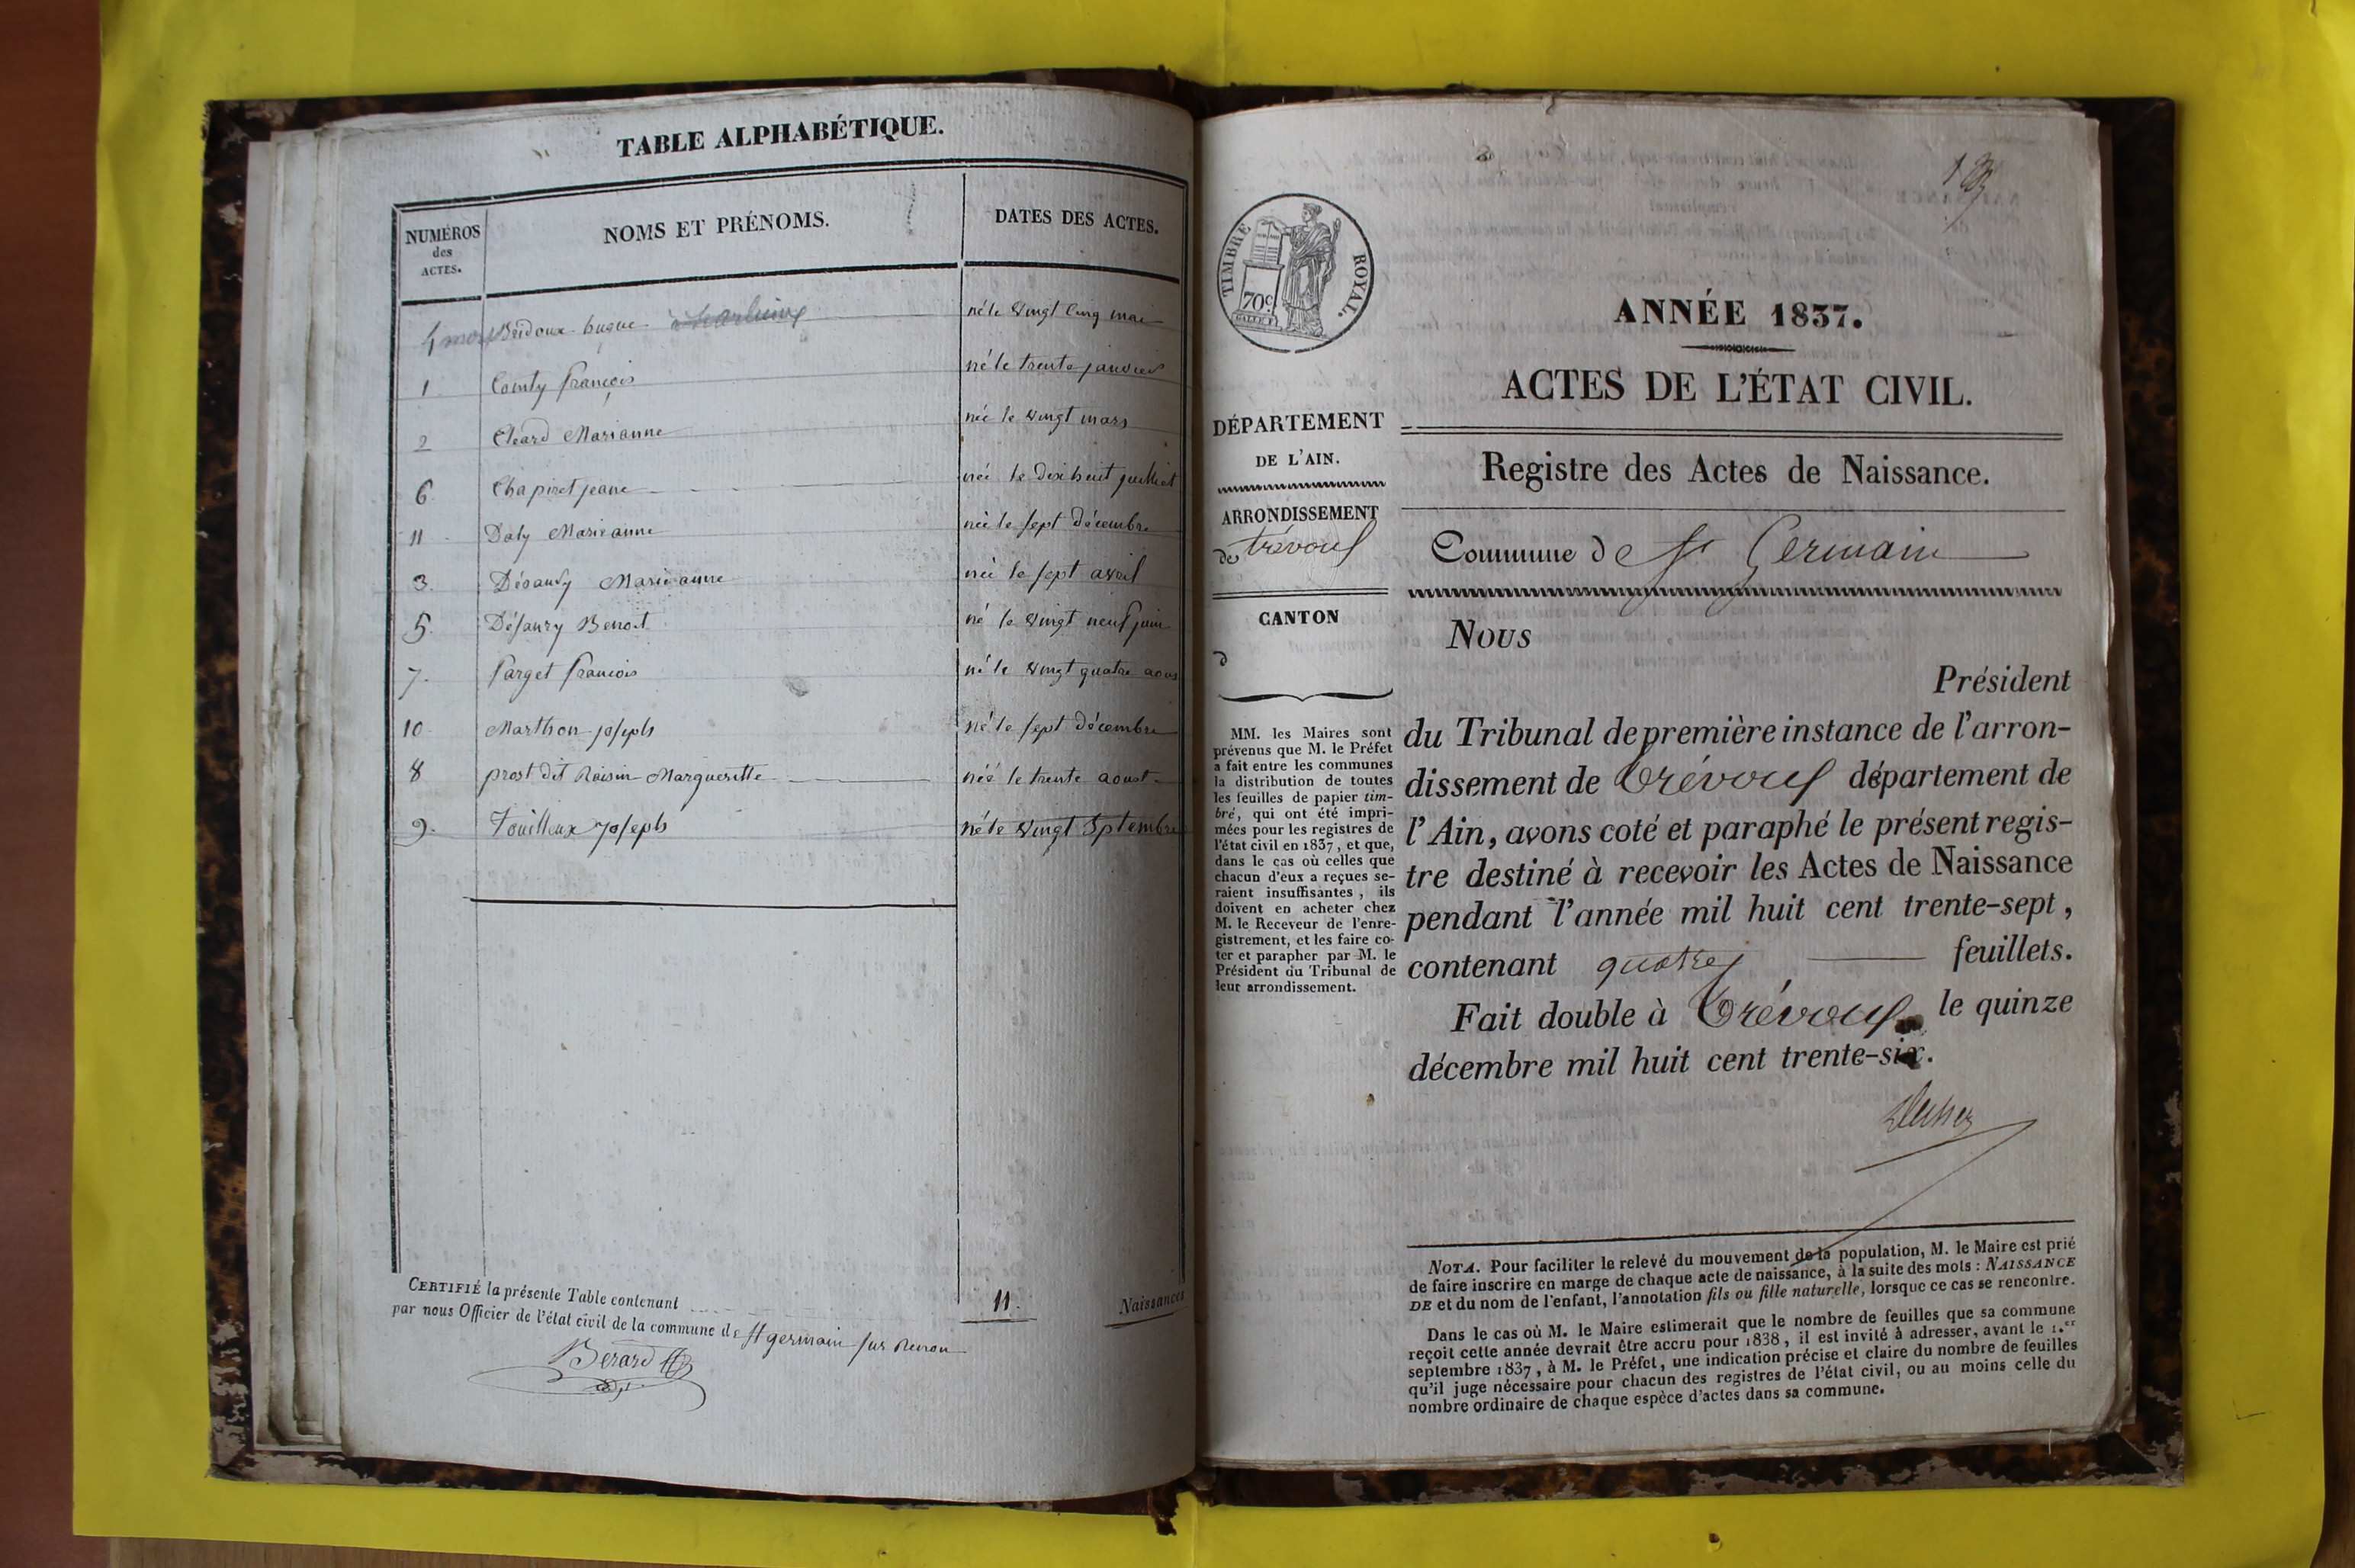 TABLE ALPHABÉTIQUE.
NUMÉROS
des
ACTES.
NOMS ET PRÉNOMS.
DATES DES ACTES.
4 Bridoux hugue né le vingt cinq mai
1 Comty françois né le trente janvier
2 Cléard Marianne née le vingt mars
6 Chapiret jeane née le dix huit juillet
11 Daty Marieanne née le sept décembre
3. Désanty Marieanne née le sept avril
5. Désanty Benoit né le vingt neuf juin
7. farget francois né le vingt quatre aous
10 Marthon joseph né le sept décembre
8 prost dit Raisin Margueritte néé le trente aoust
9. Touilleux joseph né le vingt Septembre
CERTIFIÉ la présente Table contenant 11. Naissances
par nous Officier de l'état civil de la commune de st germain sur Renon
Berard
TIMBRE ROYAL.
70c
ANNÉE 1837.
ACTES DE L'ÉTAT CIVIL.
DÉPARTEMENT
DE L'AIN.
ARRONDISSEMENT
de trévoux
CANTON
d
MM. les Maires sont
prévenus que M. le Préfet
a fait entre les communes
la distribution de toutes
les feuilles de papier tim-
bré, qui ont été impri-
mées pour les registres de
l'état civil en 1837, et que,
dans le cas où celles que
chacun d'eux a reçues se-
raient insuffisantes, ils
doivent en acheter chez
M. le Receveur de l'enre-
gistrement, et les faire co-
ter et parapher par M. le
Président du Tribunal de
leur arrondissement.
Registre des Actes de Naissance.
Commune de St Germain
Nous
Président
du Tribunal de première instance de l'arron-
dissement de Trévoux département de
l'Ain, avons coté et paraphé le présent regis-
tre destiné à recevoir les Actes de Naissance
pendant l'année mil huit cent trente-sept,
contenant quatre feuillets.
Fait double à Trévoux le quinze
décembre mil huit cent trente-six.
NOTA. Pour faciliter le relevé du mouvement de la population, M. le Maire est prié
de faire inscrire en marge de chaque acte de naissance, à la suite des mots : NAISSANCE
DE et du nom de l'enfant, l'annotation fils ou fille naturelle, lorsque ce cas se rencontre.
Dans le cas où M. le Maire estimerait que le nombre de feuilles que sa commune
reçoit cette année devrait être accru pour 1838, il est invité à adresser, avant le 1.er
septembre 1837, à M. le Préfet, une indication précise et claire du nombre de feuilles
qu'il juge nécessaire pour chacun des registres de l'état civil, ou au moins celle du
nombre ordinaire de chaque espèce d'actes dans sa commune.